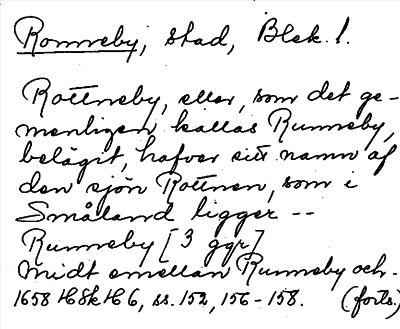 Ronneby, stad, Blek. l.
Rottneby, eller, som det ge-
menligen kallas Runneby,
belägit, hafver sitt namn af
den sjön Rottnen, som i
Småland ligger --
Runneby [3 ggr]
Midt emellan Runneby och -
1658 HSkH 6, ss. 152, 156-158. (forts.)